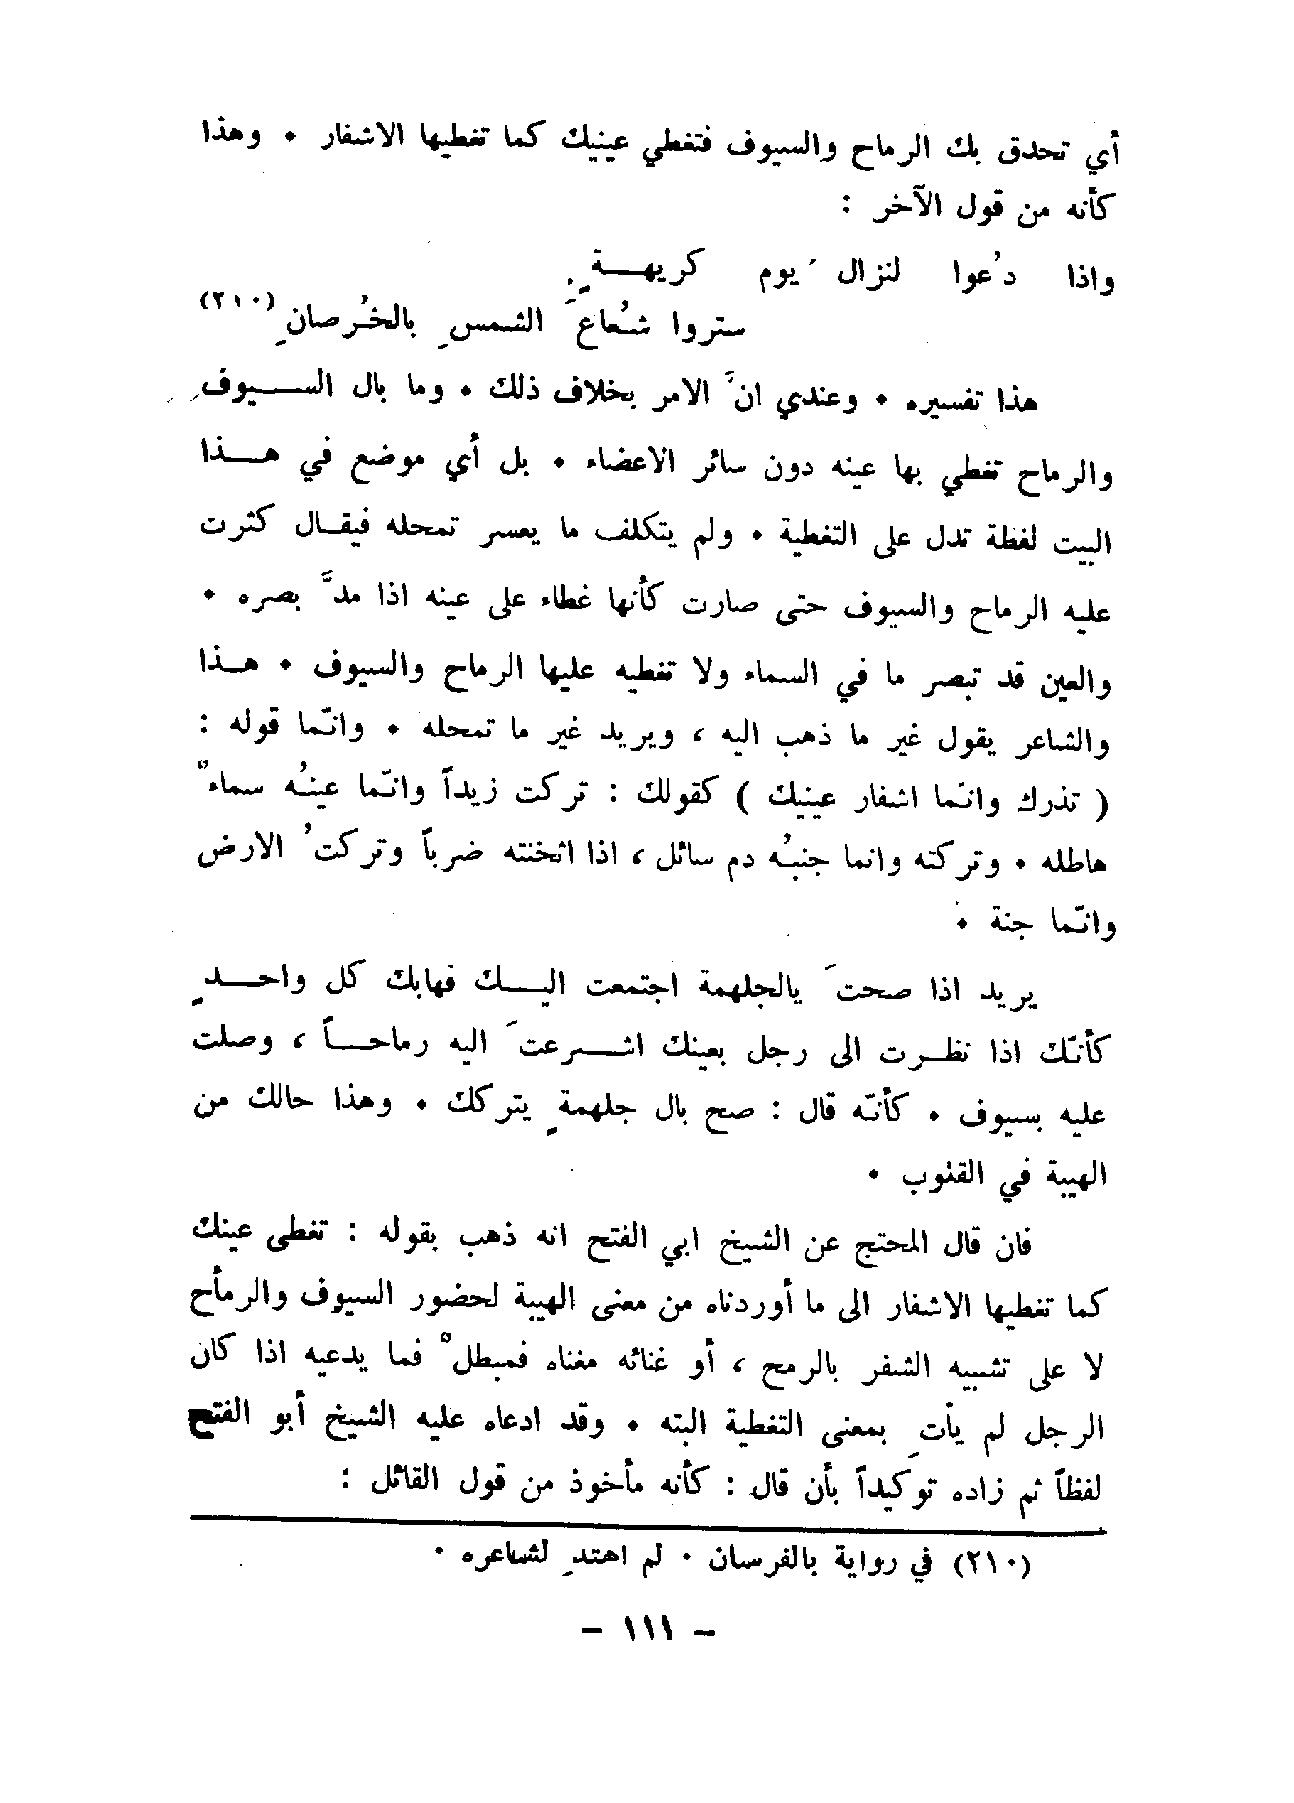 أي تحدق بك الرماح والسيوف فتغطي عينيك كما تغطيها الاشفار ٠ وهذا
كأنه من قول الآخر :
واذا دُعوا لنزال يوم كريهــةٍ
ستروا شُعاعَ الشمسِ بالخُرصانِ (٢١٠)
هذا تفسيره ٠ وعندي انَّ الامر بخلاف ذلك ٠ وما بال الســيوف
والرماح تغطي بها عينه دون سائر الاعضاء ٠ بل أي موضع في هــذا
البيت لفظة تدل على التغطية ٠ ولم يتكلف ما يعسر تمحله فيقـال كثرت
عليه الرماح والسيوف حتى صارت كأنها غطاء على عينه اذا مدَّ بصره ٠
والعين قد تبصر ما في السماء ولا تغطيه عليها الرماح والسيوف ٠ هـذا
والشاعر يقول غير ما ذهب اليه ، ويريد غير ما تمحله ٠ وانّما قوله :
( تذرك وانّما اشفار عينيك ) كقولك : تركت زيداً وانّما عينُه سماءٌ
هاطله ٠ وتركته وانما جنبُه دم سائل ، اذا اثخنته ضرباً وتركتُ الارض
وانّما جنة ٠
يريد اذا صحتَ يالجلهمة اجتمعت اليــك فهابك كل واحــدٍ
كأنّك اذا نظـرت الى رجل بعينك اشــرعتَ اليه رماحــاً ، وصلت
عليه بسيوف ٠ كأنّه قال : صح بال جلهمةٍ يتركك ٠ وهذا حالك من
الهيبة في القلوب ٠
فان قال المحتج عن الشيخ ابي الفتح انه ذهب بقوله : تغطى عينك
كما تغطيها الاشفار الى ما أوردناه من معنى الهيبة لحضور السيوف والرماح
لا على تشبيه الشفر بالرمح ، أو غنائه مغناه فمبطلٌ فما يدعيه اذا كان
الرجل لم يأتِ بمعنى التغطية البته ٠ وقد ادعاه عليه الشيخ أبو الفتح
لفظاً ثم زاده توكيداً بأن قال : كأنه مأخوذ من قول القائل :
(٢١٠) في رواية بالفرسان ٠ لم اهتدِ لشاعره ٠
– ١١١ –